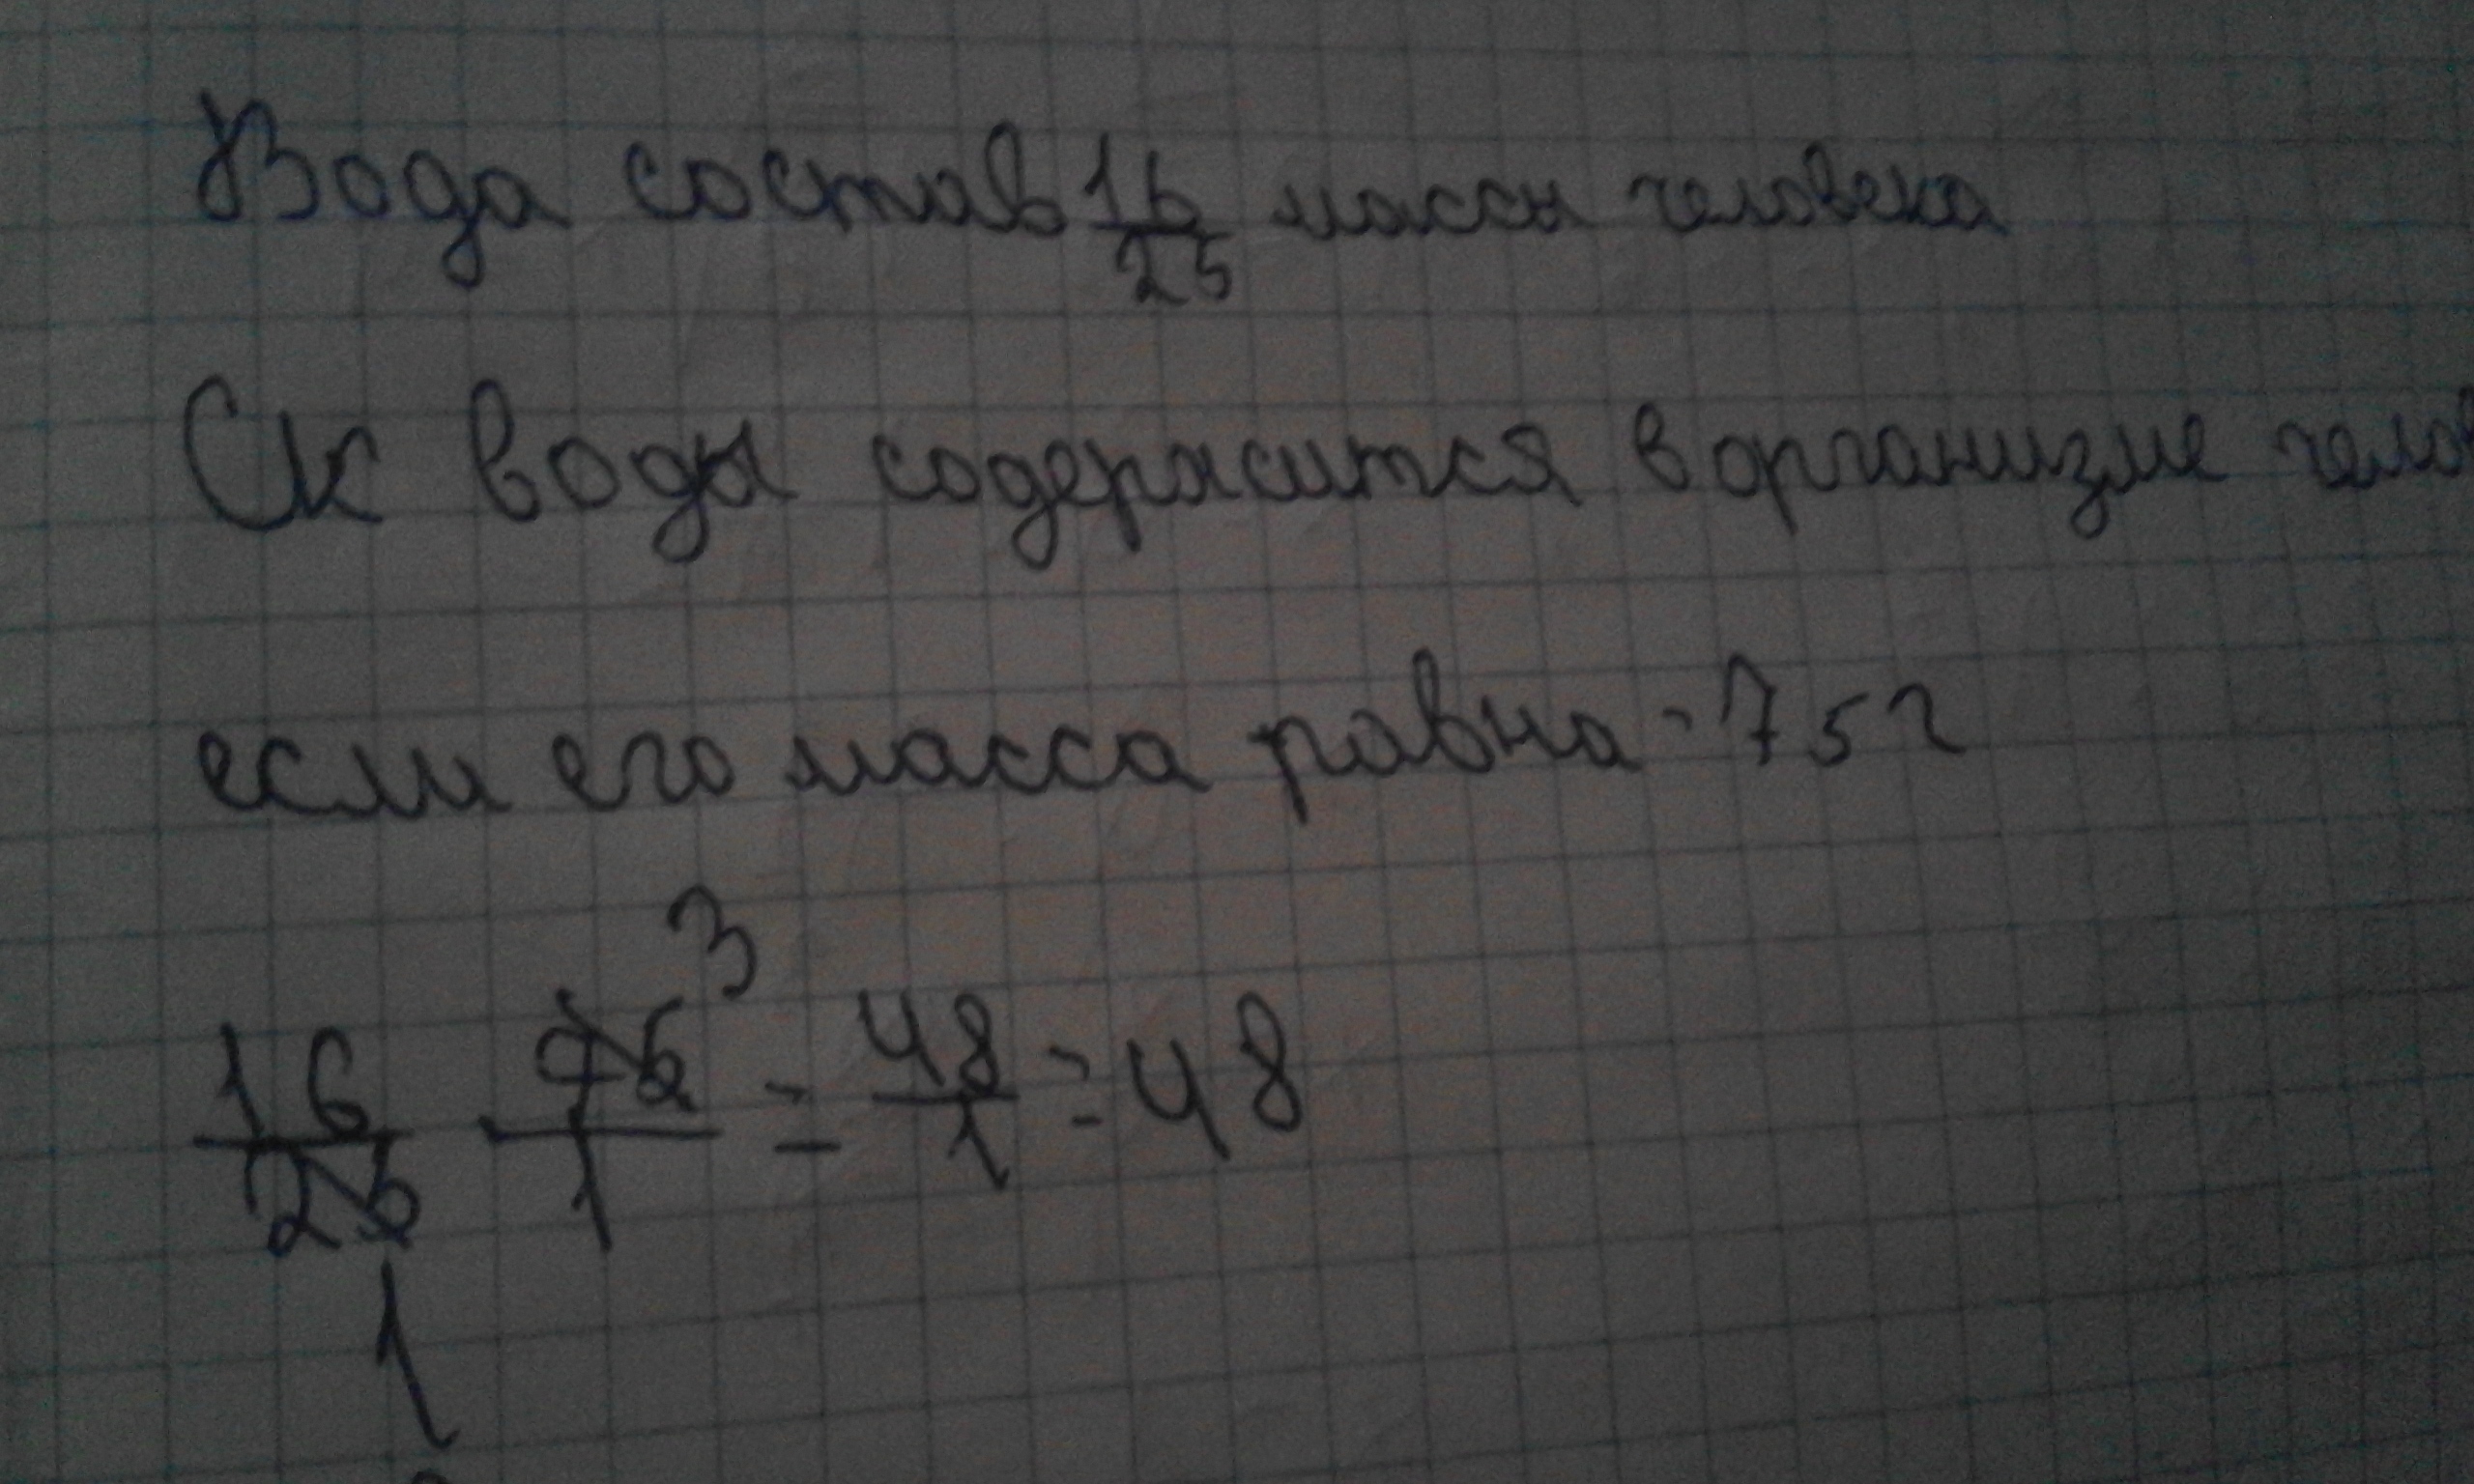 Вода состав 16/25 массы человека
Ск воды содержится в организме челов
если его масса равна - 75 г
3
16/25 · 75/1 = 48/1 = 48
1